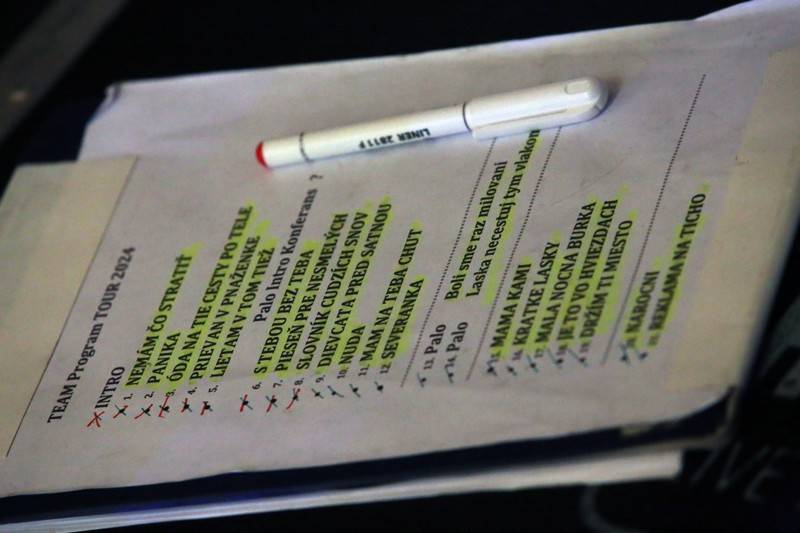 TEAM Program TOUR 2024
INTRO
1. NEMÁM ČO STRATIŤ
2. PANIKA
3. ÓDA NA TIE CESTY PO TELE
4. PRIEVAN V PNAŽENKE
5. LIETAM V TOM TIEŽ
Palo Intro Konferans ?
6. S TEBOU BEZ TEBA
7. PIESEŇ PRE NESMELÝCH
8. SLOVNÍK CUDZÍCH SNOV
9. DIEVCATA PRED SATNOU
10. NUDA
11. MAM NA TEBA CHUT
12. SEVERANKA
13. Palo Boli sme raz milovani
14. Palo Laska necestuj tym vlakon
15. MAMA KAMI
16. KRATKE LASKY
17. MALA NOCNA BURKA
18. JE TO VO HVIEZDACH
19. DRŽÍM TI MIESTO
NAROCNI
REKLAMA NA TICHO
LINER 2811 F